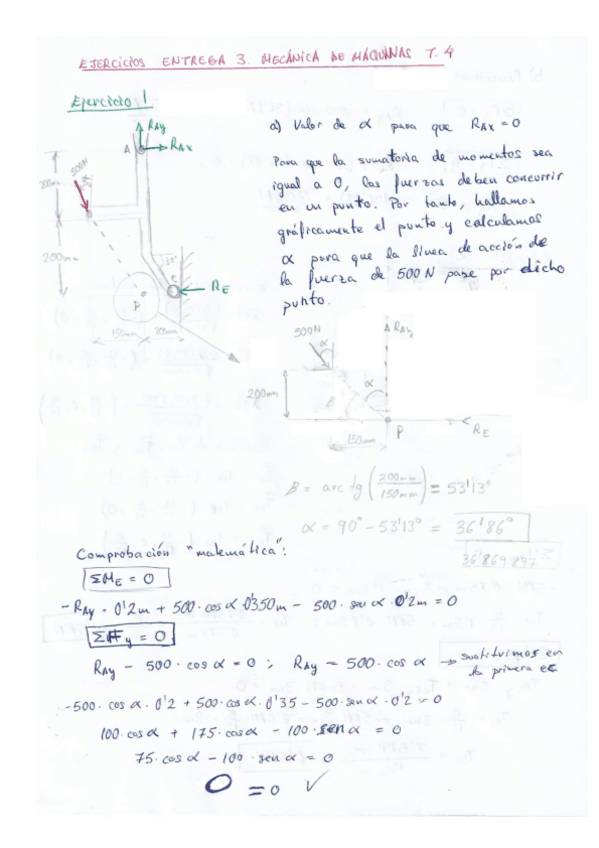 EJERCICIOS ENTREGA 3. MECÁNICA DE MÁQUINAS T. 4
Ejercicio 1
RAy
A
RAx
500N
α
200mm
200mm
30°
E
RE
P
150mm
200mm
a) Valor de α para que RAx = 0
Para que la sumatoria de momentos sea
igual a 0, las fuerzas deben concurrir
en un punto. Por tanto, hallamos
gráficamente el punto y calculamos
α para que la línea de acción de
la fuerza de 500 N pase por dicho
punto.
500N
α
RAy
200mm
α
β
P
RE
150mm
β = arc tg (200mm / 150mm) = 53'13°
α = 90° - 53'13° = 36'86°
36'869897
Comprobación "matemática":
ΣME = 0
- RAy · 0'2m + 500 · cos α · 0'350m - 500 · sen α · 0'2m = 0
ΣFy = 0
RAy - 500 · cos α = 0 ; RAy = 500 · cos α → sustituimos en
la primera ec
-500 · cos α · 0'2 + 500 · cos α · 0'35 - 500 · sen α · 0'2 = 0
100 · cos α + 175 · cos α - 100 · sen α = 0
75 · cos α - 100 · sen α = 0
0 = 0 ✓